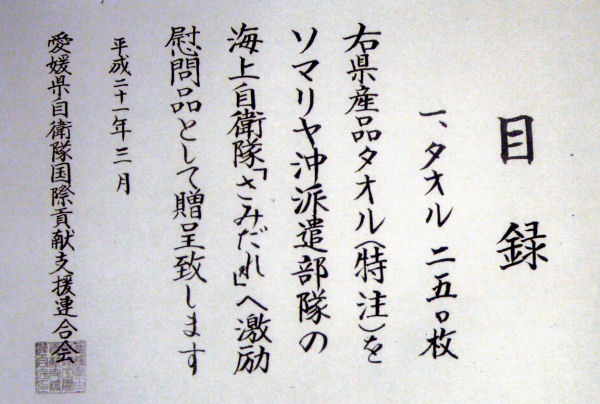 目録
一、タオル 二五〇枚
右県産品タオル(特注)を
ソマリヤ沖派遣部隊の
海上自衛隊「さみだれ」へ激励
慰問品として贈呈致します
平成二十一年三月
愛媛県自衛隊国際貢献支援連合会